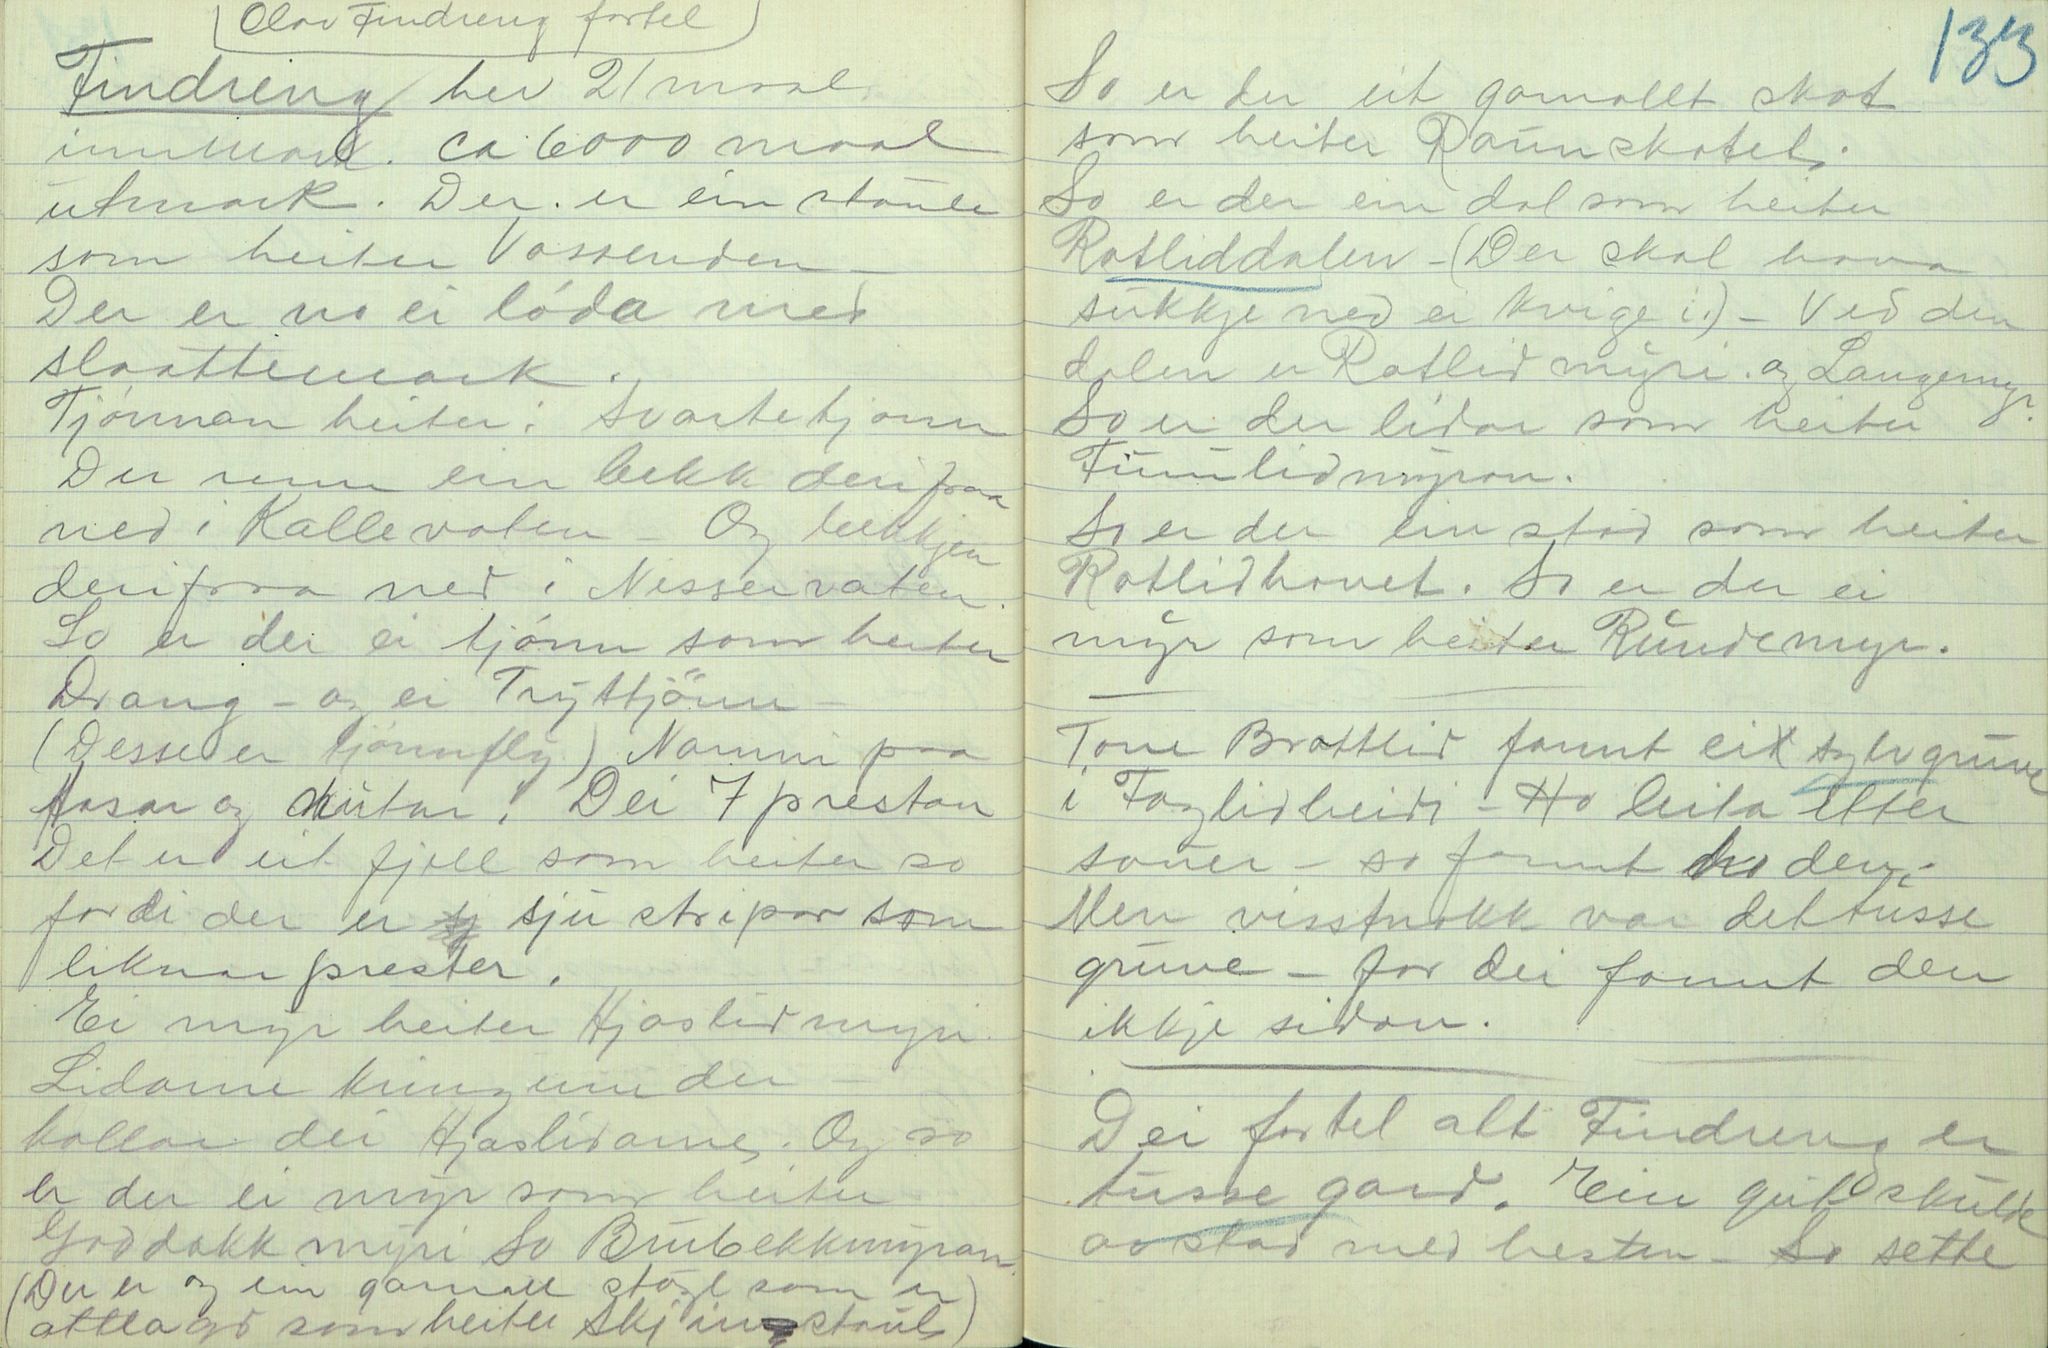 Olav Findreng fortel
Findreng her 21 maal
innmark. ca 6000 maal
utmark. Der er ein støule
som heiter Vassenden –
Der er no ei lóda med
slaattemark.
Tjónnan heiter: Svartetjønn
Der renn ein bekk derifraa
ned i Kallevaten – Og bekkjen
derifraa ned i Nisservaten.
So er der ei tjónn som heiter
Drang – og ei Trýttjönn –
(Desse er tjønnflý) Namni paa
Hasar og nutar! Dei 7 prestan
Det er eit fjell som heiter so
fordi der er sju stripar som
liknar prester.
Ei myr heiter Hjaslidmyri.
Lidarne kringum der –
kallar dei Hjaslidarne. Og so
er der ei myr som heiter
Goddokkmýri So Brubekkmyran.
(Der er og ein gamall støyl som er
attlagd som heiter Skjingstoul)
133
So er der eit gamallt skot
som heiter Raunskotet.
So er der ein dal som heiter
Rotliddalen – (Der skal hava
sukkje ned ei kvige i.) – Ved den
dalen er Rotlidmýri. og Langemyr.
So er der lidar som heiter
Furulidmýran.
So er der ein stad som heiter
Rotlidhovet. So er der ei
mýr som heiter Rundemyr.
Tone Brattlid fannt eit sylvgruve
i Faglidheidi – Ho leita etter
sauer – so fannt ho den.
Men visstnokk var det tusse
gruve – for dei fannt den
ikkje sidan.
Dei fortel alt Findreng er
tusse gard. Ein gut skulde
avstad med hesten – So sette